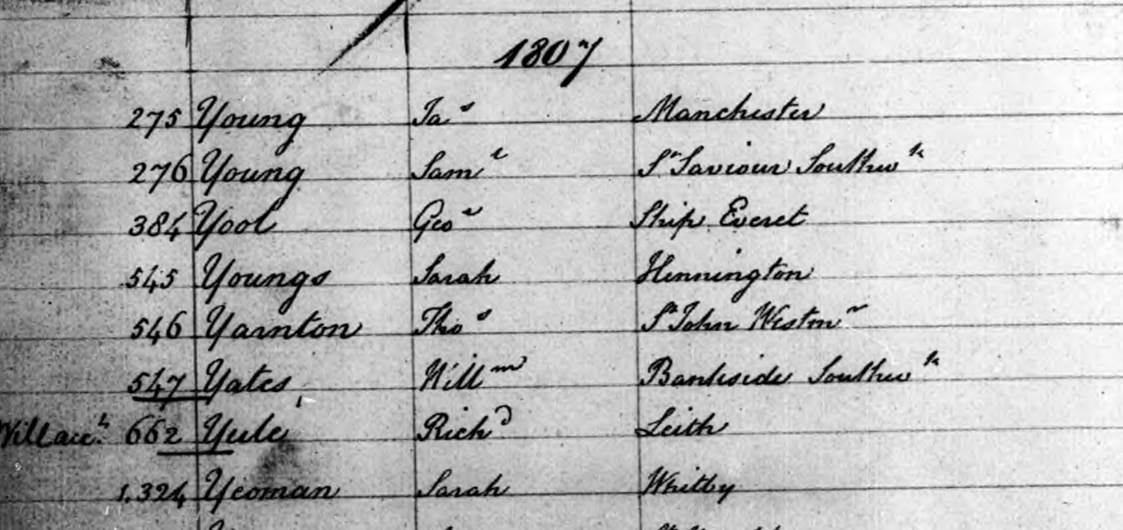 1807
275 Young Jas Manchester
276 Young Saml St Saviour Southwk
384 Yool Geo Ship Everet
545 Youngs Sarah Hennington
546 Yarnton Thos St John Westmr
547 Yates Willm Bankside Southwk
662 Yule Richd Leith
1.324 Yeoman Sarah Whitby